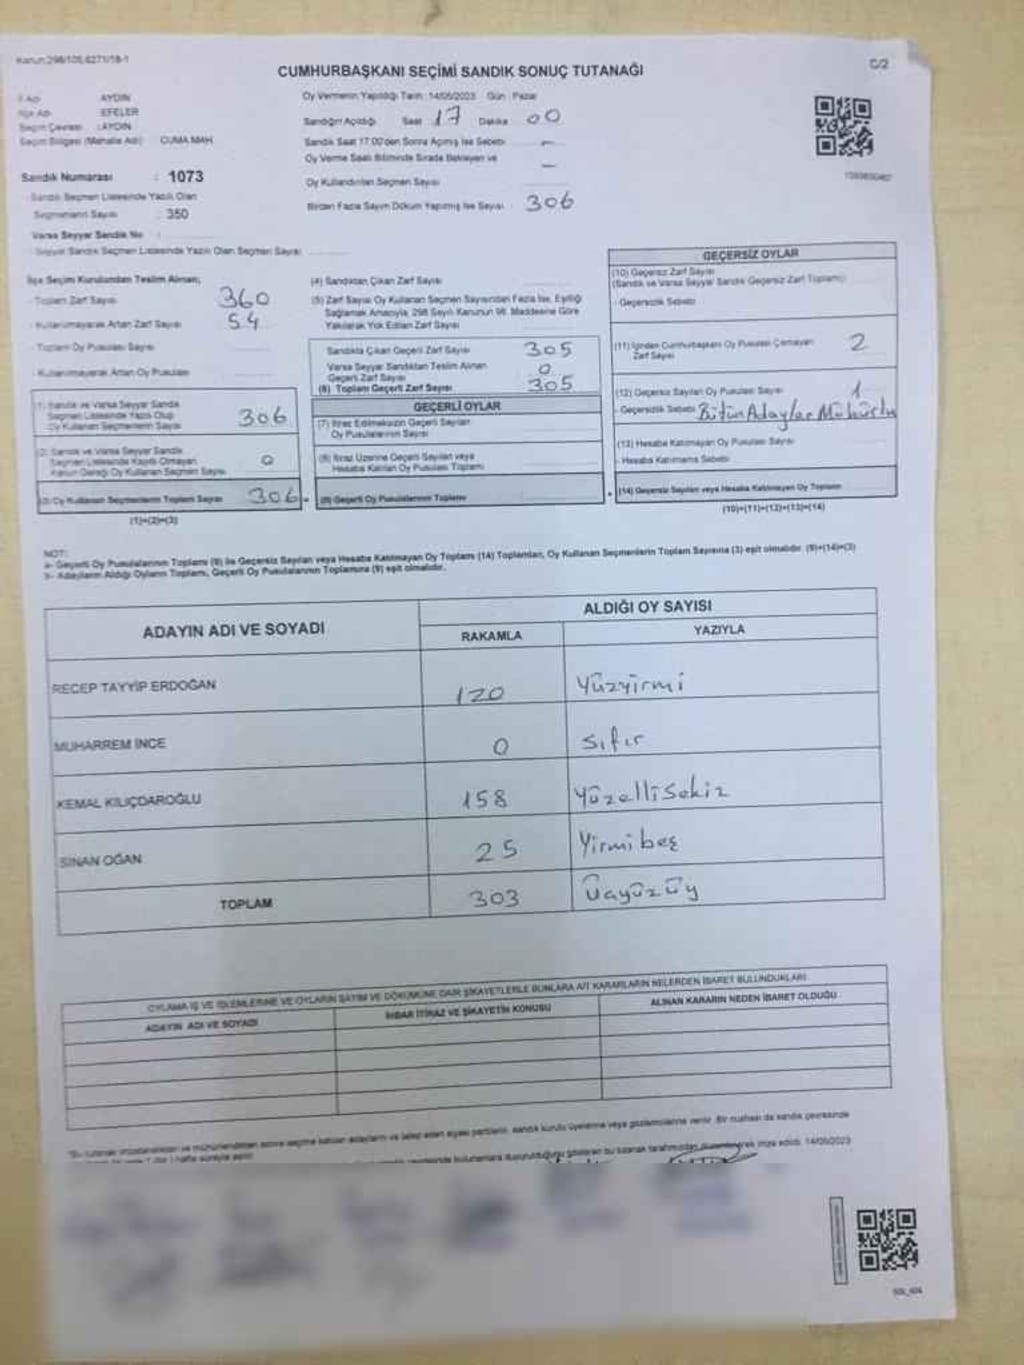 Kanun:298/105,6271/18-1
CUMHURBAŞKANI SEÇİMİ SANDIK SONUÇ TUTANAĞI
C/2
İl Adı AYDIN
İlçe Adı EFELER
Seçim Çevresi : AYDIN
Seçim Bölgesi (Mahalle Adı) CUMA MAH
Sandık Numarası : 1073
- Sandık Seçmen Listesinde Yazılı Olan
Seçmenlerin Sayısı : 350
Varsa Seyyar Sandık No :
- Seyyar Sandık Seçmen Listesinde Yazılı Olan Seçmen Sayısı
Oy Vermenin Yapıldığı Tarih : 14/05/2023 Gün : Pazar
Sandığın Açıldığı Saat 17 Dakika 00
Sandık Saat 17:00'den Sonra Açılmış İse Sebebi —
Oy Verme Saati Bitiminde Sırada Bekleyen ve
Oy Kullandırılan Seçmen Sayısı —
Birden Fazla Sayım Döküm Yapılmış İse Sayısı : 306
İlçe Seçim Kurulundan Teslim Alınan;
- Toplam Zarf Sayısı 360
- Kullanılmayarak Artan Zarf Sayısı 54
- Toplam Oy Pusulası Sayısı
- Kullanılmayarak Artan Oy Pusulası
(1) Sandık ve Varsa Seyyar Sandık
Seçmen Listesinde Yazılı Olup
Oy Kullanan Seçmenlerin Sayısı 306
(2) Sandık ve Varsa Seyyar Sandık
Seçmen Listesinde Kayıtlı Olmayan
Kanun Gereği Oy Kullanan Seçmen Sayısı 0
(3) Oy Kullanan Seçmenlerin Toplam Sayısı 306
(1)+(2)=(3)
(4) Sandıktan Çıkan Zarf Sayısı
(5) Zarf Sayısı Oy Kullanan Seçmen Sayısından Fazla İse, Eşitliği
Sağlamak Amacıyla, 298 Sayılı Kanunun 98. Maddesine Göre
Yakılarak Yok Edilen Zarf Sayısı
Sandıkta Çıkan Geçerli Zarf Sayısı 305
Varsa Seyyar Sandıktan Teslim Alınan
Geçerli Zarf Sayısı 0
(6) Toplam Geçerli Zarf Sayısı 305
GEÇERLİ OYLAR
(7) İtiraz Edilmeksizin Geçerli Sayılan
Oy Pusulalarının Sayısı
(8) İtiraz Üzerine Geçerli Sayılan veya
Hesaba Katılan Oy Pusulası Toplamı
(9) Geçerli Oy Pusulalarının Toplamı
GEÇERSİZ OYLAR
(10) Geçersiz Zarf Sayısı
(Sandık ve Varsa Seyyar Sandık Geçersiz Zarf Toplamı)
- Geçersizlik Sebebi
(11) İçinden Cumhurbaşkanı Oy Pusulası Çıkmayan
Zarf Sayısı 2
(12) Geçersiz Sayılan Oy Pusulası Sayısı 1
- Geçersizlik Sebebi Bütün Adaylar Mühürlü
(13) Hesaba Katılmayan Oy Pusulası Sayısı
- Hesaba Katılmama Sebebi
(14) Geçersiz Sayılan veya Hesaba Katılmayan Oy Toplamı
(10)+(11)+(12)+(13)=(14)
NOT:
a- Geçerli Oy Pusulalarının Toplamı (9) ile Geçersiz Sayılan veya Hesaba Katılmayan Oy Toplamı (14) Toplamları, Oy Kullanan Seçmenlerin Toplam Sayısına (3) eşit olmalıdır. (9)+(14)=(3)
b- Adayların Aldığı Oyların Toplamı, Geçerli Oy Pusulalarının Toplamına (9) eşit olmalıdır.
ADAYIN ADI VE SOYADI ALDIĞI OY SAYISI
RAKAMLA YAZIYLA
RECEP TAYYİP ERDOĞAN 120 Yüzyirmi
MUHARREM İNCE 0 Sıfır
KEMAL KILIÇDAROĞLU 158 Yüzellisekiz
SİNAN OĞAN 25 Yirmibeş
TOPLAM 303 Üçyüzüç
OYLAMA İŞ VE İŞLEMLERİNE VE OYLARIN SAYIM VE DÖKÜMÜNE DAİR ŞİKAYETLERLE BUNLARA AİT KARARLARIN NELERDEN İBARET BULUNDUKLARI
ADAYIN ADI VE SOYADI İHBAR İTİRAZ VE ŞİKAYETİN KONUSU ALINAN KARARIN NEDEN İBARET OLDUĞU
14/05/2023